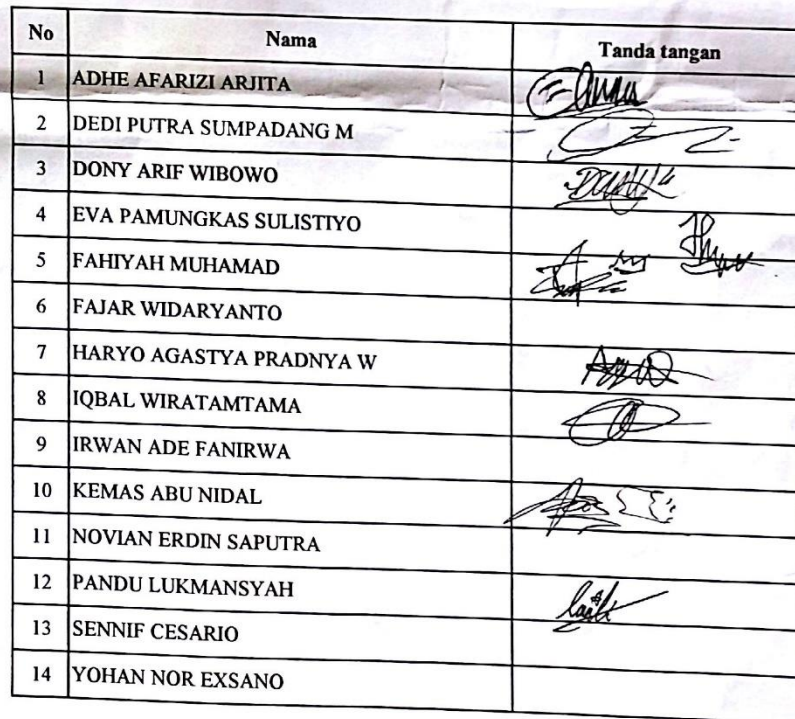 No Nama Tanda tangan
1 ADHE AFARIZI ARJITA
2 DEDI PUTRA SUMPADANG M
3 DONY ARIF WIBOWO
4 EVA PAMUNGKAS SULISTIYO
5 FAHIYAH MUHAMAD
6 FAJAR WIDARYANTO
7 HARYO AGASTYA PRADNYA W
8 IQBAL WIRATAMTAMA
9 IRWAN ADE FANIRWA
10 KEMAS ABU NIDAL
11 NOVIAN ERDIN SAPUTRA
12 PANDU LUKMANSYAH
13 SENNIF CESARIO
14 YOHAN NOR EXSANO